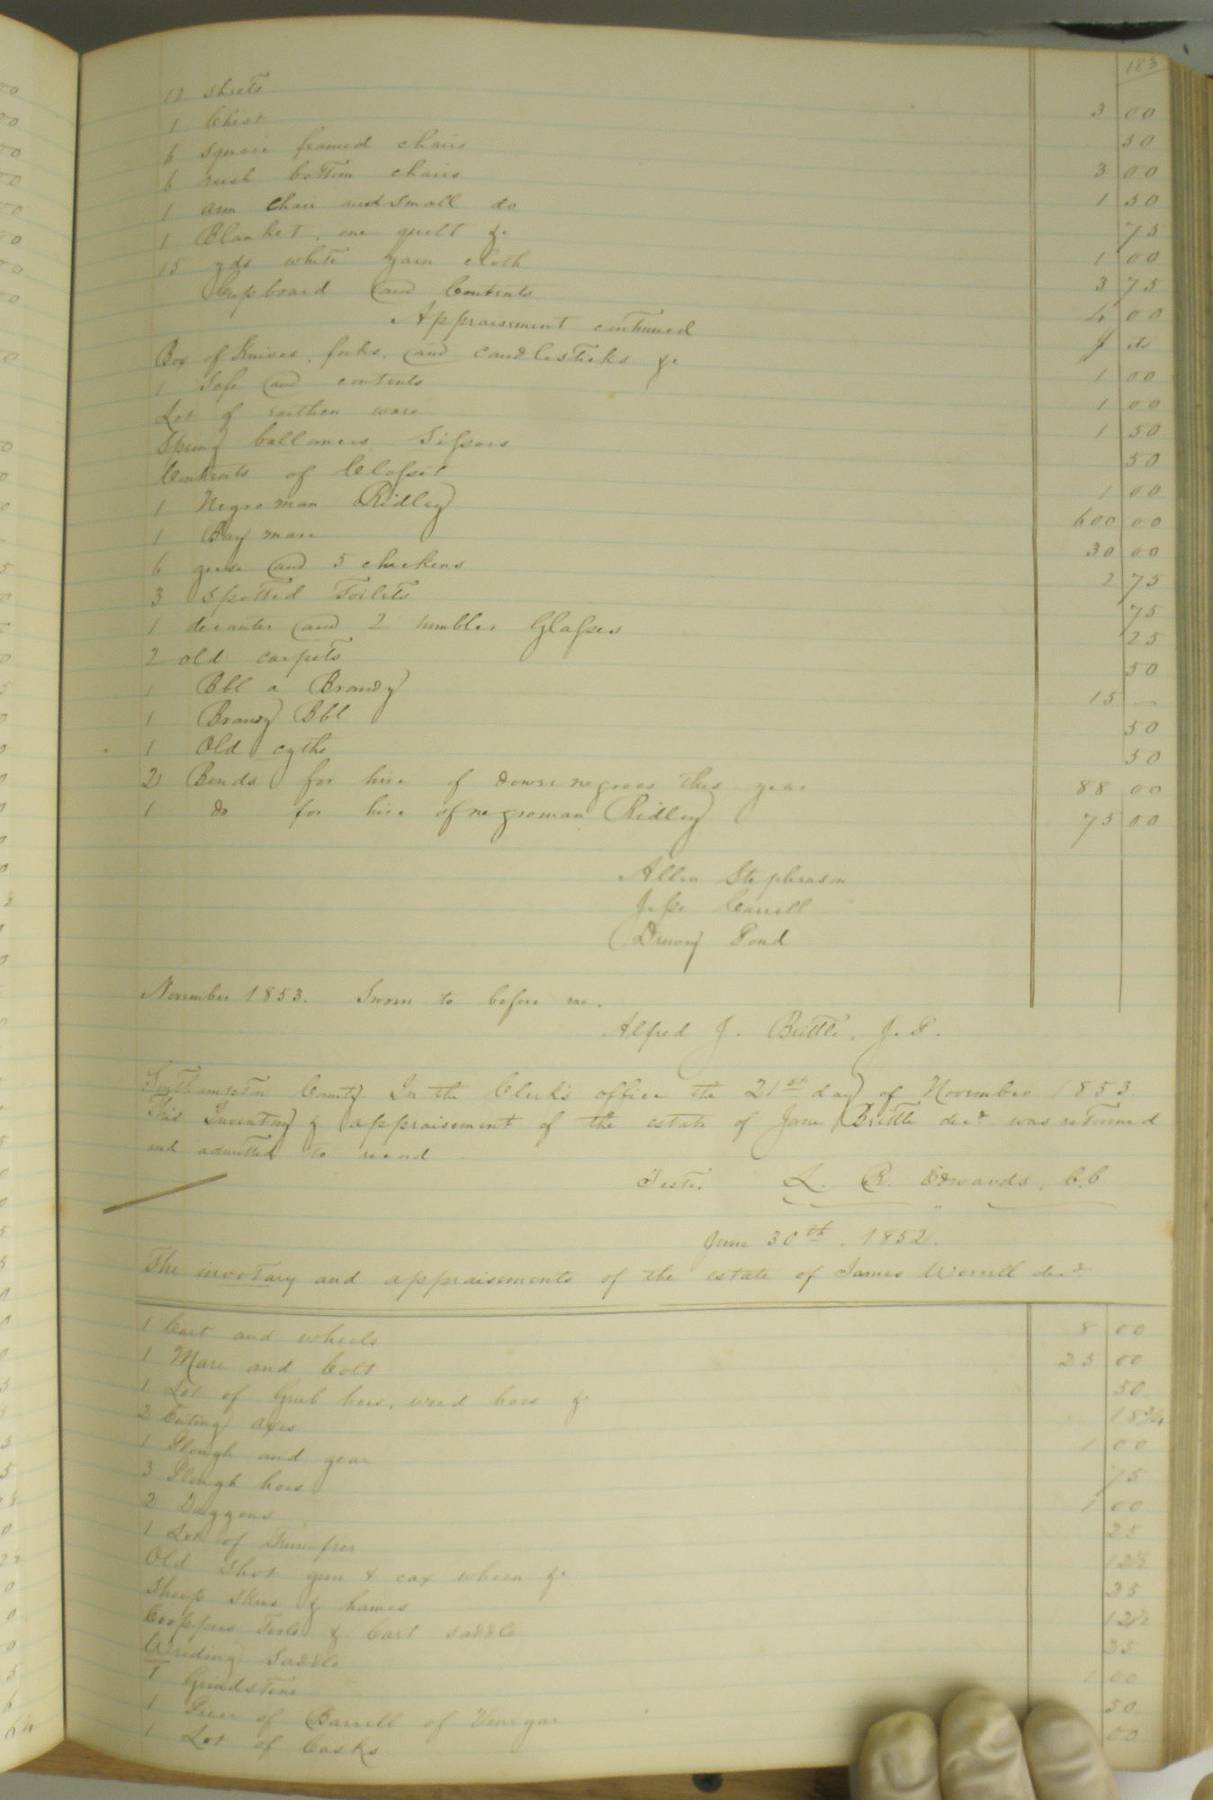 183
12 sheets 3 00
1 Chest 50
6 square framed chairs 3 00
6 rush bottom chairs 1 50
1 arm chair and small do 75
1 Blanket, one quilt &c 1 00
15 yds white yarn cloth 3 75
Cupboard and Contents 4 00
Appraisement continued $ cts
Box of Knives, forks, and candlesticks &c 1 00
1 Safe and contents 1 00
Lot of earthen ware 1 50
Spring 50
Contents of Closset 1 00
1 Negro man Ridley 600 00
1 Bay mare 30 00
6 geese and 5 chickens 2 75
3 spotted Toilets 75
1 decanter and 2 tumbler Glasses 25
2 old carpets 50
1 Bbl a Brandy 15 —
1 Brandy Bbl 50
1 Old cythe 50
2 Bonds for hire of dower negroes this year 88 00
1 do for hire of negroman Ridley 75 00
Allen Stephenson
Jesse Carrell
Drewry Pond
November 1853. Sworn to before me.
Alfred J. Brittle, J. P.
Southampton County In the Clerk's office the 21st day of November 1853
This Inventory & appraisement of the estate of Jane Brittle decd was returned
and admitted to record
Teste. L. R. Edwards, C.C
June 30th, 1852.
The invotary and appraisements of the estate of James Worrell decd
1 Cart and wheels 8 00
1 Mare and Colt 25 00
1 Lot of Grub hoes, weed hoes &c 50
2 Cuting axes 18 3/4
1 Plough and gear 1 00
3 Plough hoes 75
2 Daggons 1 00
1 Lot of 25
Old shot gun & &c 12 1/2
Sheep skins & hames 25
Cooppers Tools & Cart saddle 12 1/2
Wriding Saddle 25
1 Grindstone 1 00
1 Piece of Barrell of Vinegar 50
1 Lot of Casks 00